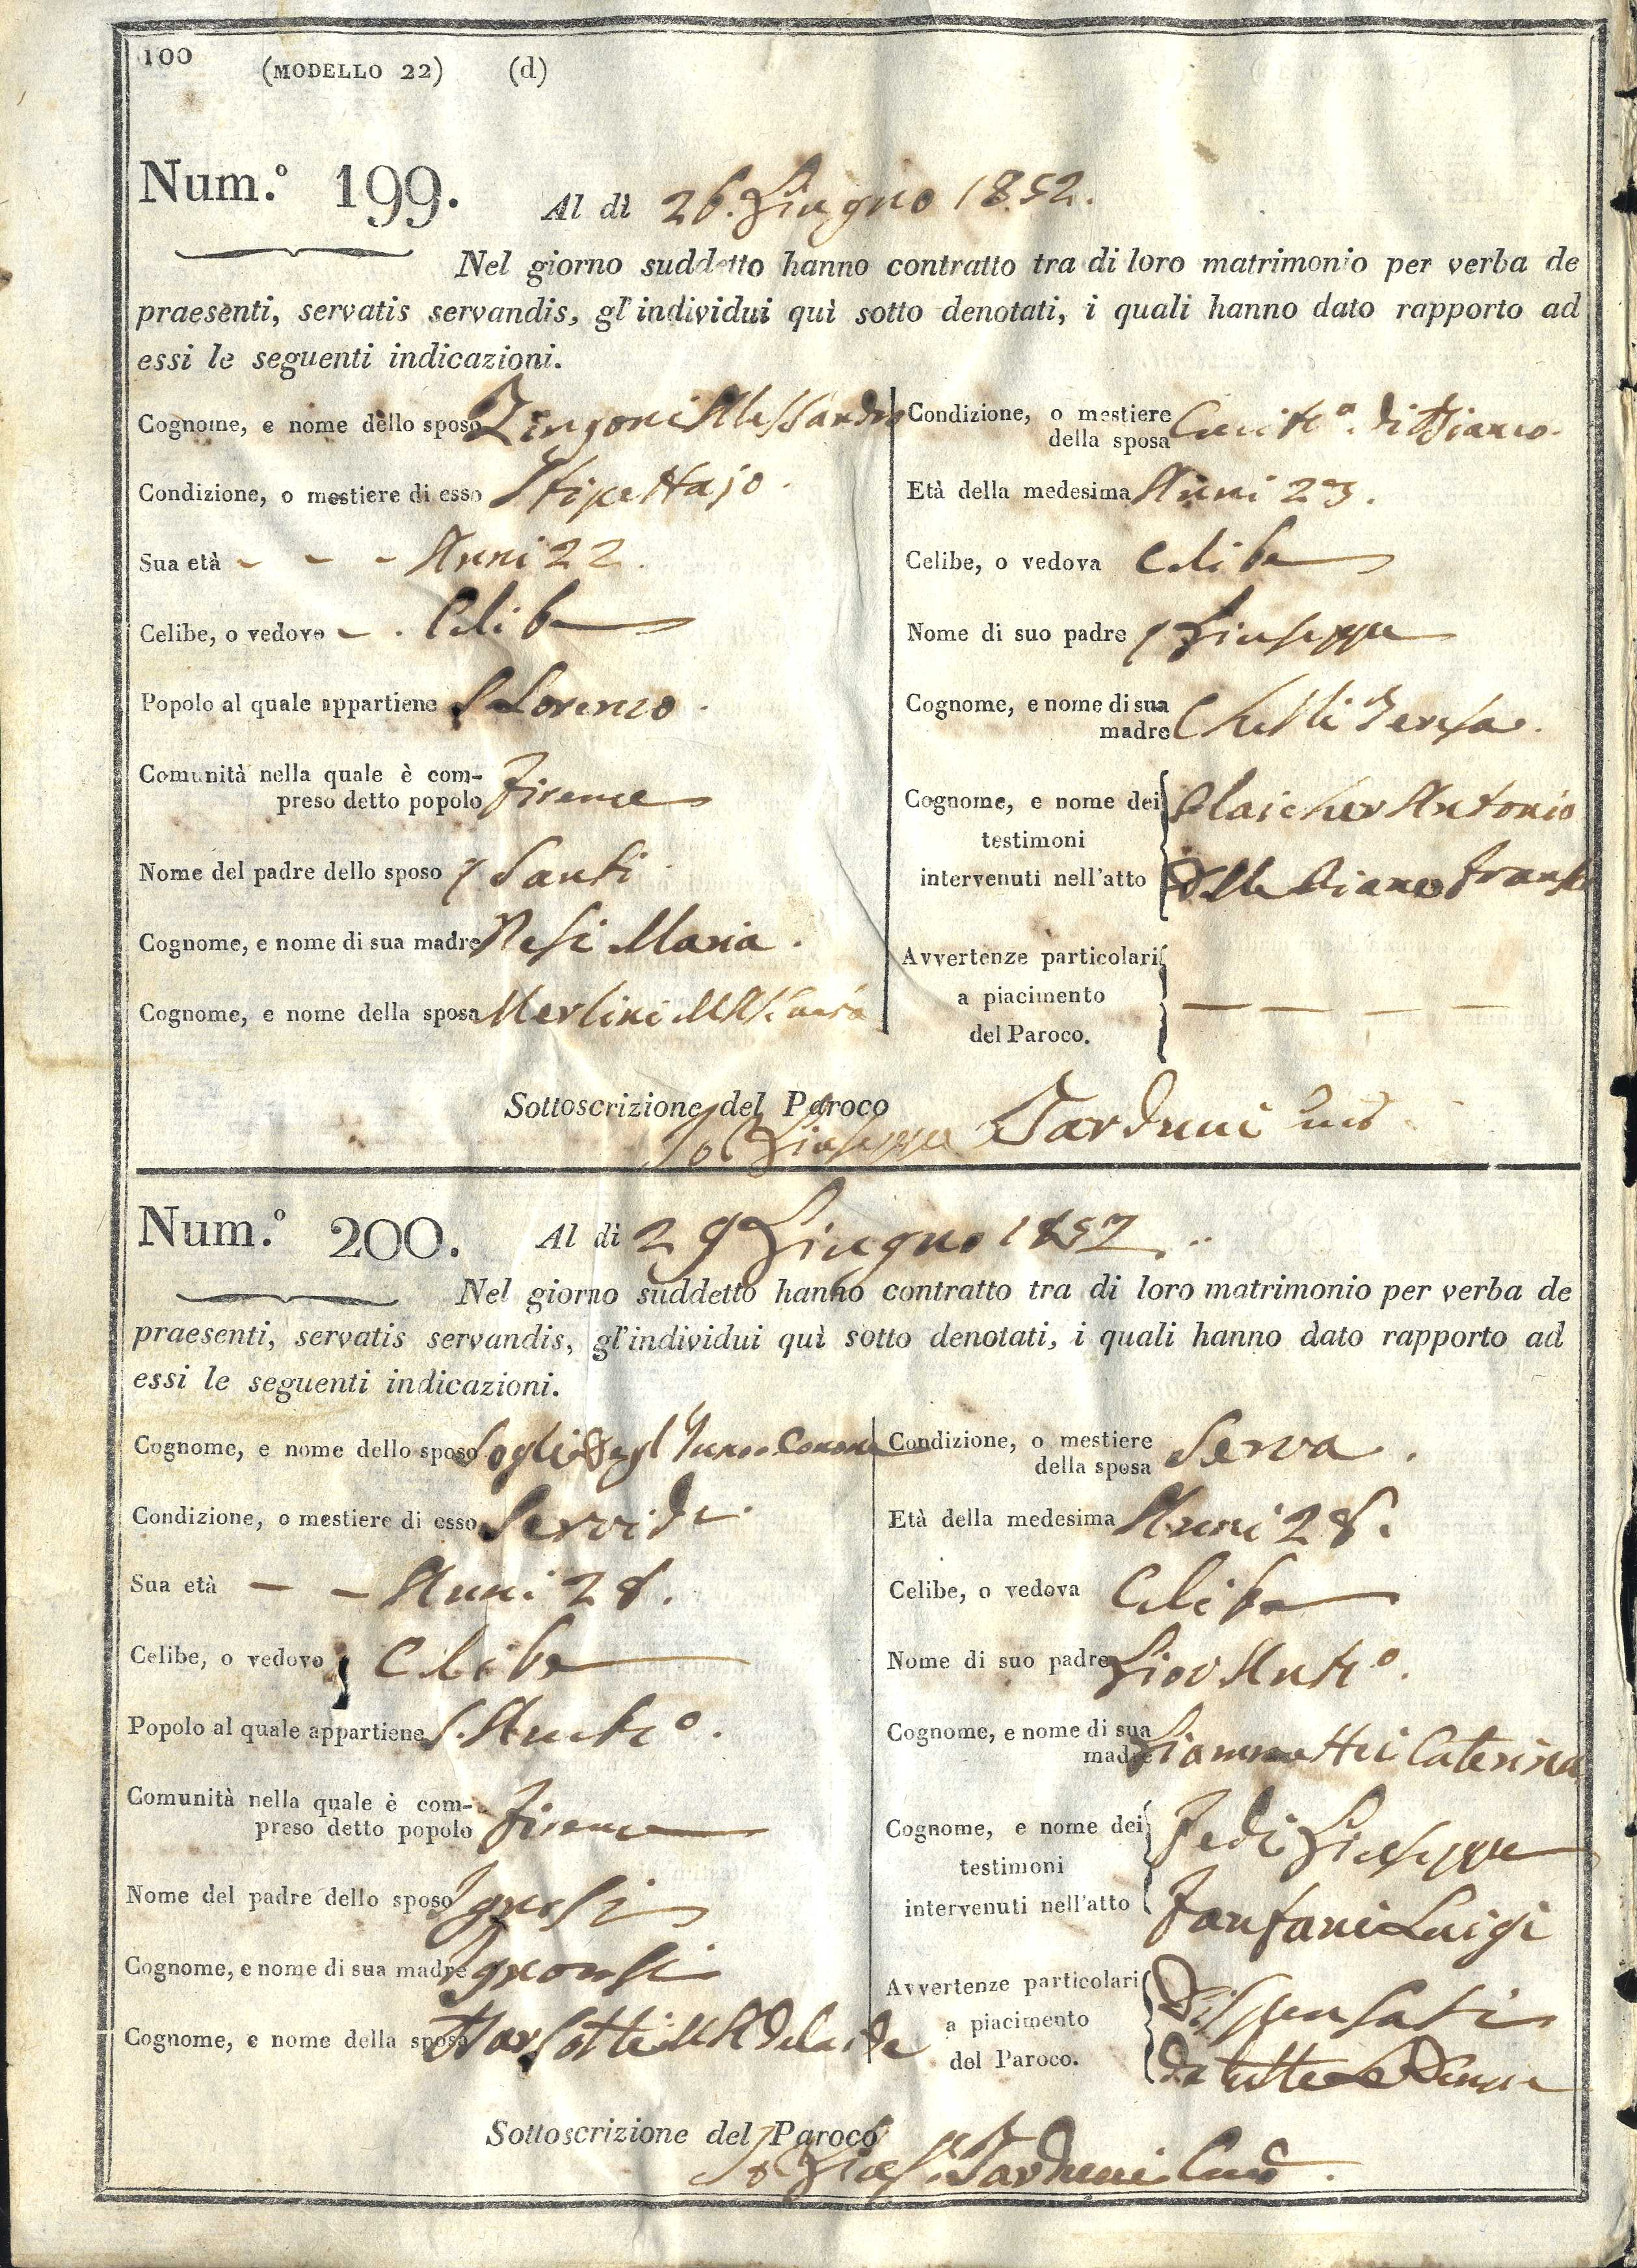 100 (MODELLO 22) (d)
Num.º 199. Al dì 26. Giugno 1852.
Nel giorno suddetto hanno contratto tra di loro matrimonio per verba de
praesenti, servatis servandis, gl'individui quì sotto denotati, i quali hanno dato rapporto ad
essi le seguenti indicazioni.
Cognome, e nome dello sposo Zingoni Alessandro
Condizione, o mestiere di esso Stipettajo.
Sua età - - - Anni 22.
Celibe, o vedovo - . Celibe
Popolo al quale appartiene S Lorenzo.
Comunità nella quale è com-
preso detto popolo Firenze
Nome del padre dello sposo Santi
Cognome, e nome di sua madre Nesi Maria.
Cognome, e nome della sposa Merlini
Condizione, o mestiere
della sposa di Bianco.
Età della medesima Anni 23.
Celibe, o vedova Celibe
Nome di suo padre Giuseppe
Cognome, e nome di sua
madre Chelli Teresa.
Cognome, e nome dei Antonio
testimoni
intervenuti nell'atto
Avvertenze particolari
a piacimento — — — —
del Paroco.
Sottoscrizione del Paroco
Giuseppe Tarduini
Num.º 200. Al dì 29 Giugno 1852.
Nel giorno suddetto hanno contratto tra di loro matrimonio per verba de
praesenti, servatis servandis, gl'individui quì sotto denotati, i quali hanno dato rapporto ad
essi le seguenti indicazioni.
Cognome, e nome dello sposo
Condizione, o mestiere di esso Servide
Sua età — — Anni 28.
Celibe, o vedovo Celibe
Popolo al quale appartiene
Comunità nella quale è com-
preso detto popolo Firenze
Nome del padre dello sposo
Cognome, e nome di sua madre
Cognome, e nome della sposa
Condizione, o mestiere
della sposa Serva.
Età della medesima Anni 28.
Celibe, o vedova Celibe
Nome di suo padre Giov Antº.
Cognome, e nome di sua
madre Giammattei Caterina
Cognome, e nome dei Fedi Giuseppe
testimoni
intervenuti nell'atto Fanfani Luigi
Avvertenze particolari Dispensati
a piacimento
del Paroco. da tutte le Denun
Sottoscrizione del Paroco
Gius. Tarduini